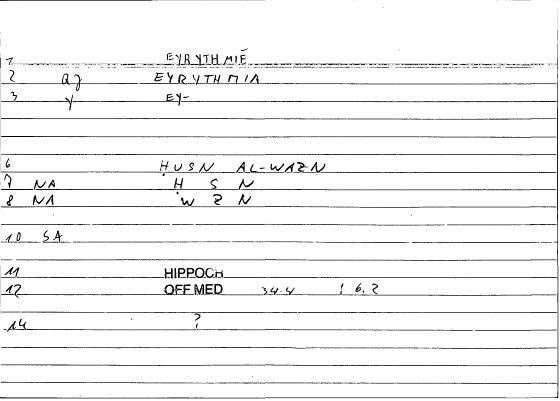 1 EYRYTHMIĒ
2 aj EYRYTHMIA
3 y EY-
6 ḤUSN AL-WAZN
7 NA Ḥ S N
8 NA W Z N
10 SA
11 HIPPOCH
12 OFF MED 34.4 ! 6.2
14 ?